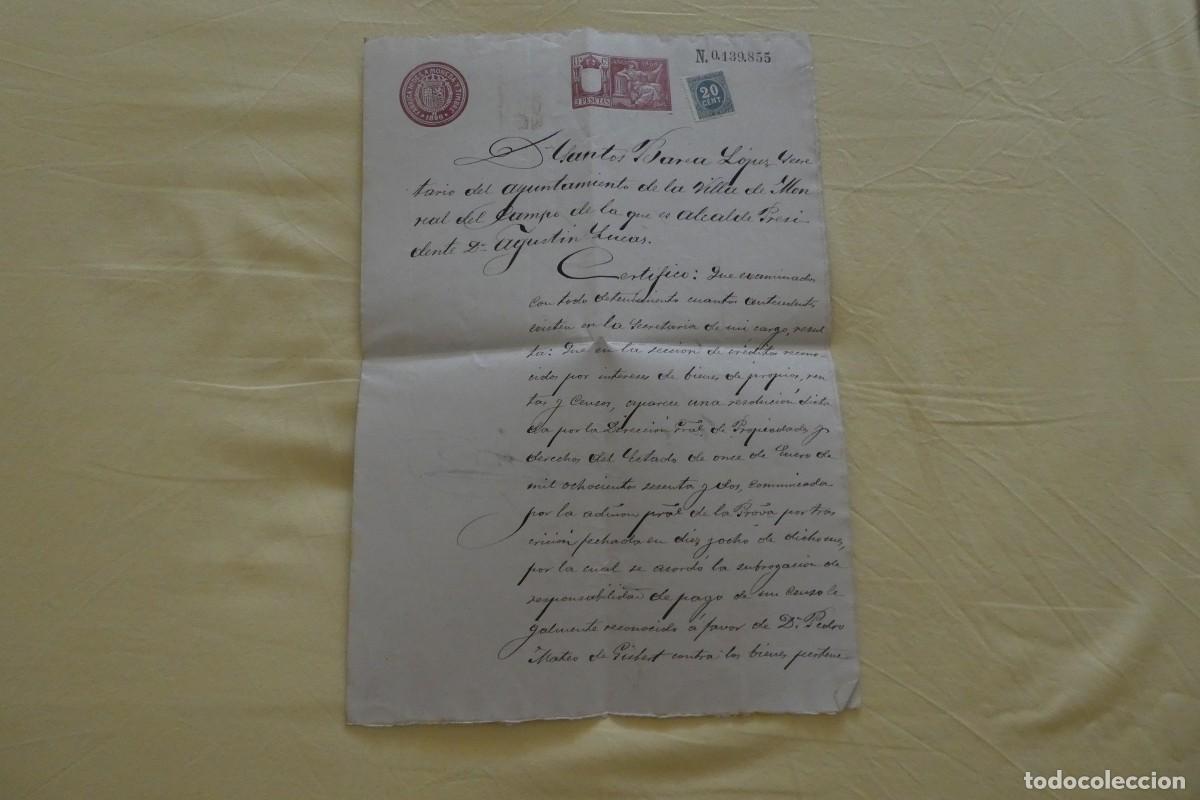 N. 0.139.855
FABRICA NAL DE MONEDA Y TIMBRE
1898
2 PESETAS
20
CENT.
Dn Santos Barea López, Secre
tario del ayuntamiento de la Villa de Mon
real del Campo de la que es alcalde Presi-
dente Dn Agustin Lucas.
Certifico: Que examinados
con todo detenimiento cuantos antecedentes
existen en la Secretaria de mi cargo, resul
ta: Que en la seccion de créditos recono-
cidos por intereses de bienes de propios, ren
tas y Censos, aparece una resolución dicta
da por la Dirección Gral. de Propiedades y
derechos del Estado de once de Enero de
mil ochocientos sesenta y dos, comunicada
por la admon pral de la Prova por tras
crición fechada en diez y ocho de dicho mes,
por la cual se acordó la subrogacion de
responsabilidad de pago de un Censo le
galmente reconocido á favor de Dn Pedro
Mateo de Gisbert contra los bienes pertene-
todocoleccion